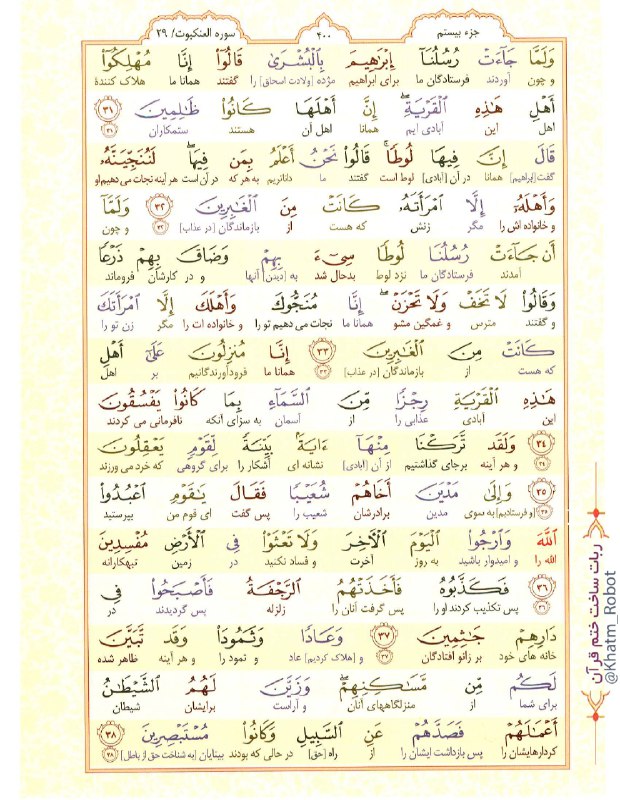 جزء بیستم
۴۰۰
سورة العنکبوت/ ۲۹
وَلَمَّا جَآءَتۡ رُسُلُنَآ إِبۡرَٰهِيمَ بِٱلۡبُشۡرَىٰ قَالُوٓاْ إِنَّا مُهۡلِكُوٓاْ
و چون آوردند فرستادگان ما برای ابراهیم مژده [ولادت اسحاق] را گفتند همانا ما هلاک کنندهٔ
أَهۡلِ هَٰذِهِ ٱلۡقَرۡيَةِۖ إِنَّ أَهۡلَهَا كَانُواْ ظَٰلِمِينَ ۳۱
اهل این آبادی ایم همانا اهل آن هستند ستمکاران ۳۱
قَالَ إِنَّ فِيهَا لُوطٗاۚ قَالُواْ نَحۡنُ أَعۡلَمُ بِمَن فِيهَاۖ لَنُنَجِّيَنَّهُۥ
گفت [ابراهیم] همانا در آن [آبادی] لوط است گفتند ما داناتریم به هر که در آن است هر آینه نجات می دهیم او
وَأَهۡلَهُۥٓ إِلَّا ٱمۡرَأَتَهُۥ كَانَتۡ مِنَ ٱلۡغَٰبِرِينَ ۳۲ وَلَمَّآ
و خانواده اش را مگر زنش که هست از بازماندگان [در عذاب] ۳۲ و چون
أَن جَآءَتۡ رُسُلُنَا لُوطٗا سِيٓءَ بِهِمۡ وَضَاقَ بِهِمۡ ذَرۡعٗا
آمدند فرستادگان ما نزد لوط بدحال شد به [دیدن] آنها و در کارشان فروماند
وَقَالُواْ لَا تَخَفۡ وَلَا تَحۡزَنۡ إِنَّا مُنَجُّوكَ وَأَهۡلَكَ إِلَّا ٱمۡرَأَتَكَ
و گفتند مترس و غمگین مشو همانا ما نجات می دهیم تو را و خانواده ات را مگر زن تو را
كَانَتۡ مِنَ ٱلۡغَٰبِرِينَ ۳۳ إِنَّا مُنزِلُونَ عَلَىٰٓ أَهۡلِ
که هست از بازماندگان [در عذاب] ۳۳ همانا ما فرودآورندگانیم بر اهل
هَٰذِهِ ٱلۡقَرۡيَةِ رِجۡزٗا مِّنَ ٱلسَّمَآءِ بِمَا كَانُواْ يَفۡسُقُونَ
این آبادی عذابی را از آسمان به سزای آنکه نافرمانی می کردند
۳۴ وَلَقَد تَّرَكۡنَا مِنۡهَآ ءَايَةَۢ بَيِّنَةٗ لِّقَوۡمٖ يَعۡقِلُونَ
۳۴ و هر آینه برجای گذاشتیم از آن [آبادی] نشانه ای آشکار را برای گروهی که خرد می ورزند
۳۵ وَإِلَىٰ مَدۡيَنَ أَخَاهُمۡ شُعَيۡبٗا فَقَالَ يَٰقَوۡمِ ٱعۡبُدُواْ
۳۵ [و فرستادیم] به سوی مدین برادرشان شعیب را پس گفت ای قوم من بپرستید
ٱللَّهَ وَٱرۡجُواْ ٱلۡيَوۡمَ ٱلۡأٓخِرَ وَلَا تَعۡثَوۡاْ فِي ٱلۡأَرۡضِ مُفۡسِدِينَ
الله را و امیدوار باشید به روز آخرت و فساد نکنید در زمین تبهکارانه
۳۶ فَكَذَّبُوهُ فَأَخَذَتۡهُمُ ٱلرَّجۡفَةُ فَأَصۡبَحُواْ فِي
۳۶ پس تکذیب کردند او را پس گرفت آنان را زلزله پس گردیدند در
دَارِهِمۡ جَٰثِمِينَ ۳۷ وَعَادٗا وَثَمُودَاْ وَقَد تَّبَيَّنَ
خانه های خود بر زانو افتادگان ۳۷ و [هلاک کردیم] عاد و ثمود را و هر آینه ظاهر شده
لَكُم مِّن مَّسَٰكِنِهِمۡۖ وَزَيَّنَ لَهُمُ ٱلشَّيۡطَٰنُ
برای شما از منزلگاههای آنان و آراست برایشان شیطان
أَعۡمَٰلَهُمۡ فَصَدَّهُمۡ عَنِ ٱلسَّبِيلِ وَكَانُواْ مُسۡتَبۡصِرِينَ ۳۸
کردارهایشان را پس بازداشت ایشان را از راه [حق] در حالی که بودند بینایان [به شناخت حق از باطل] ۳۸
ربات ساخت ختم قرآن
@Khatm_Robot